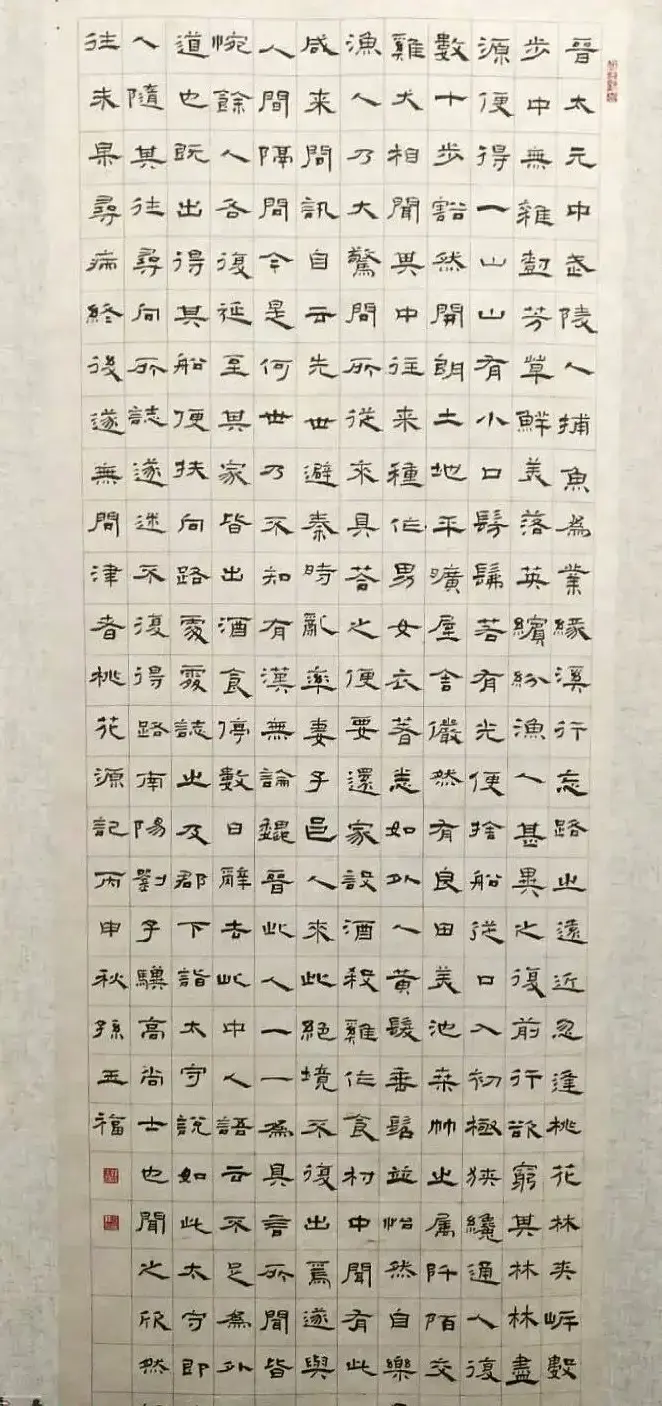 晉太元中武陵人捕魚為業緣溪行忘路之遠近忽逢桃花林夾岸數
步中無雜樹芳草鮮美落英繽紛漁人甚異之復前行欲窮其林林盡
源便得一山山有小口髣髴若有光便捨船從口入初極狹纔通人復
數十步豁然開朗土地平曠屋舍儼然有良田美池桑竹之属阡陌交
雞犬相聞其中往來種作男女衣著悉如外人黃髮垂髫並怡然自樂
漁人乃大驚問所從來具荅之便要還家設酒殺雞作食村中聞有此
咸來問訊自云先世避秦時亂率妻子邑人來此絕境不復出焉遂與
人間隔問今是何世乃不知有漢無論魏晉此人一一為具言所聞皆
惋餘人各復延至其家皆出酒食停數日辭去此中人語云不足為外
道也既出得其船便扶向路處處誌之及郡下詣太守說如此太守即
人隨其往尋向所誌遂迷不復得路南陽劉子驥高尚士也聞之欣然
往未果尋病終後遂無問津者桃花源記丙申秋孫玉福